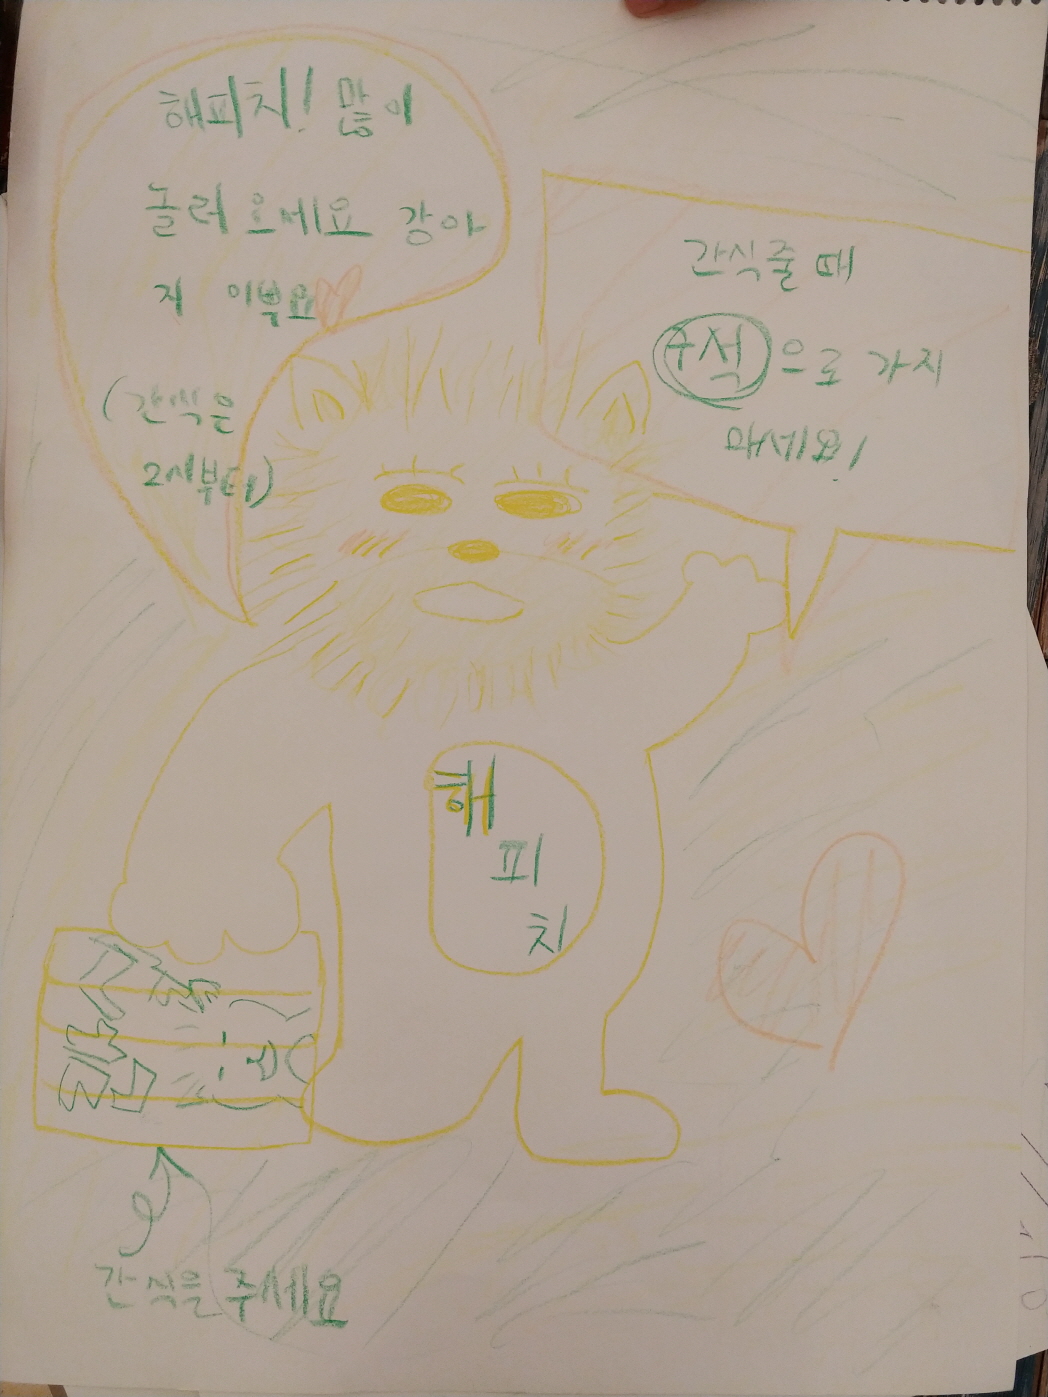 해피치! 많이
놀러 오세요 강아
지 이뻐요
(간식은
2시부터)
간식줄 때
구석으로 가지
마세요!
해
피
치
간식을 주세요